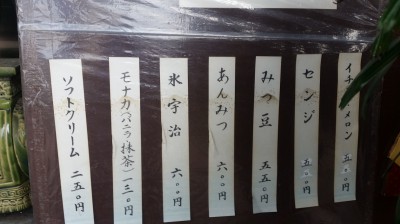 イチゴ、メロン 五五〇円
センジ 五〇〇円
みつ豆 五五〇円
あんみつ 六〇〇円
氷宇治 六〇〇円
モナカ(バニラ、抹茶) 一三〇円
ソフトクリーム 二五〇円